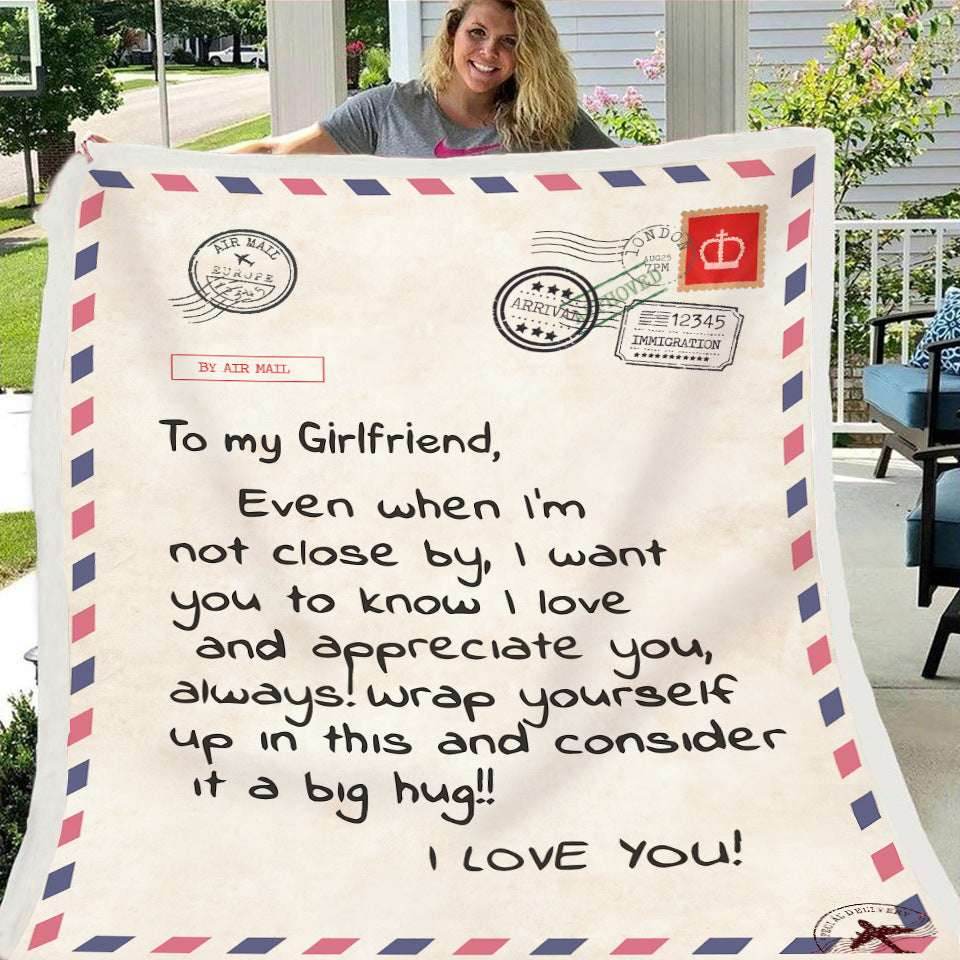 AIR MAIL
EUROPE
12345
LONDON
AUG25
7PM
ARRIVAL
APPROVED
12345
IMMIGRATION
BY AIR MAIL
To my Girlfriend,
Even when I'm
not close by, I want
you to know I love
and appreciate you,
always! wrap yourself
up in this and consider
it a big hug!!
I LOVE YOU!
DELIVERY